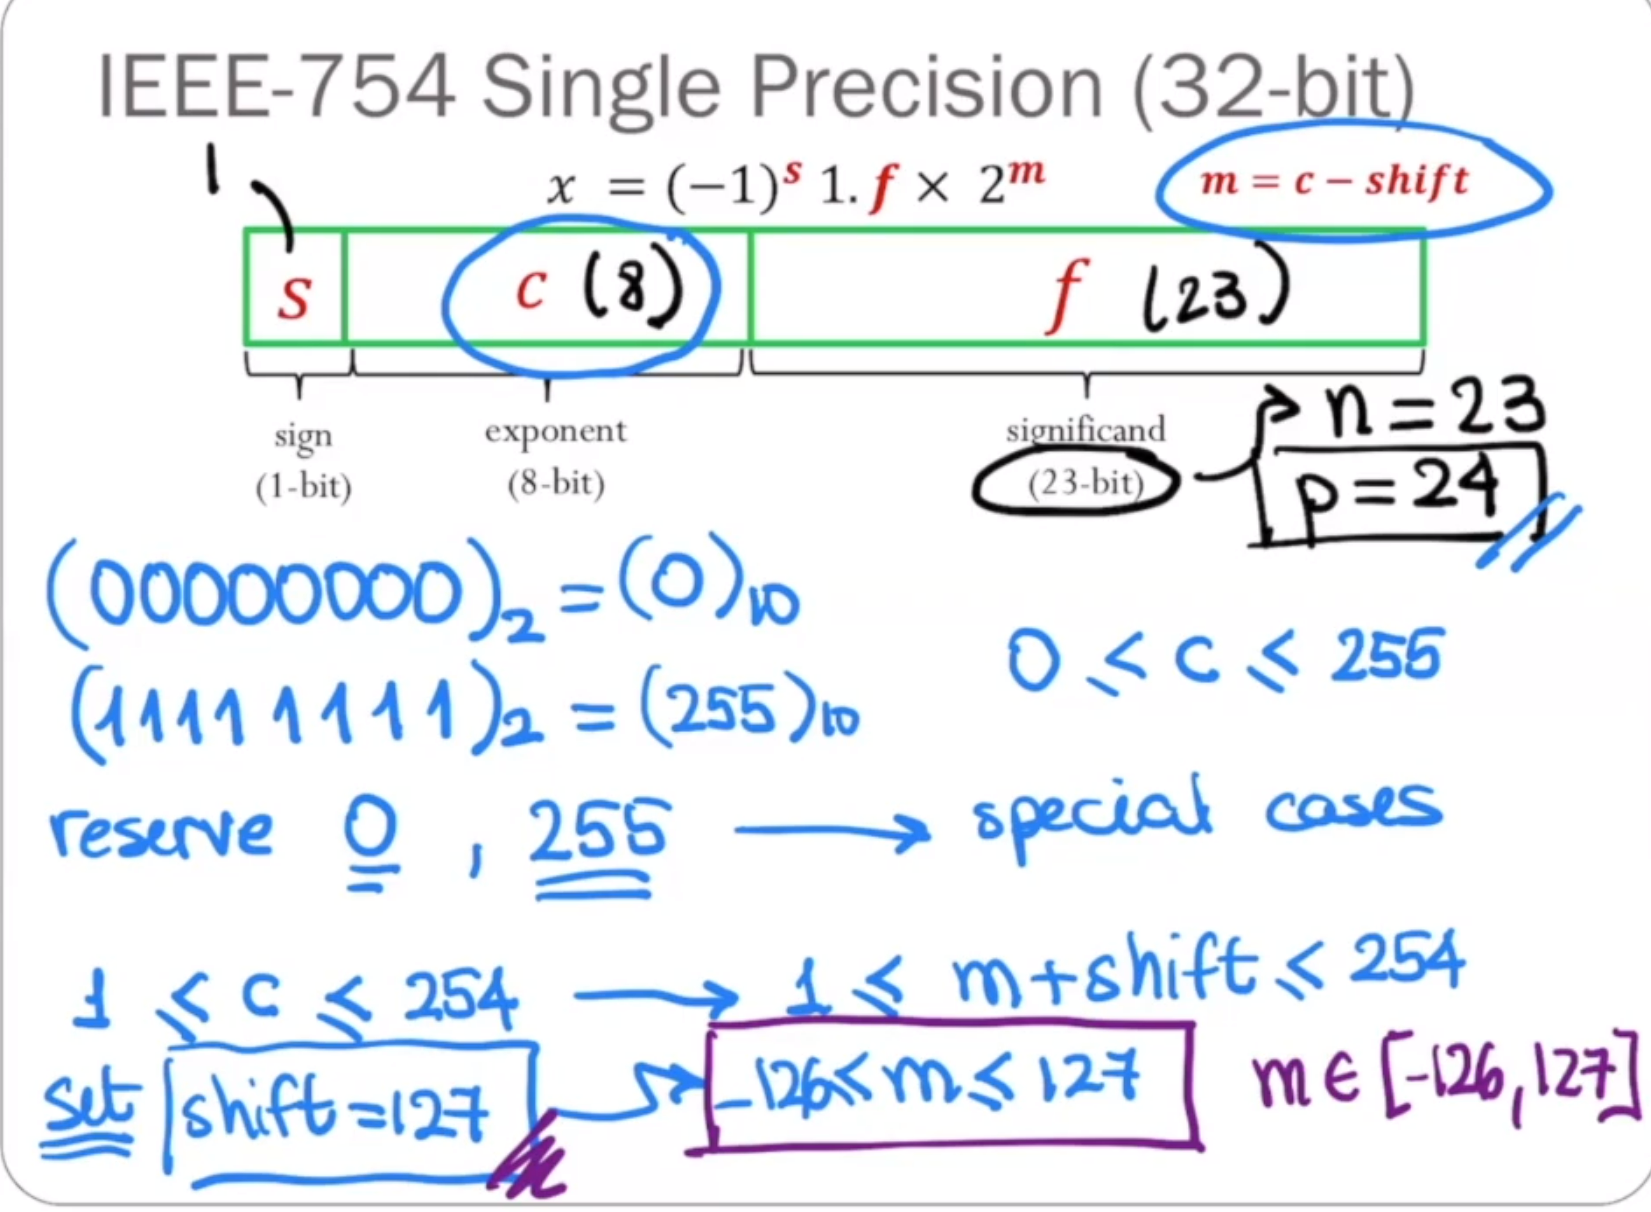 IEEE-754 Single Precision (32-bit)
1
x = (−1)^s 1.f × 2^m
m = c − shift
s c (8) f (23)
sign exponent significand
(1-bit) (8-bit) (23-bit)
n = 23
p = 24
(00000000)₂ = (0)₁₀
0 ≤ c ≤ 255
(11111111)₂ = (255)₁₀
reserve 0 , 255 → special cases
1 ≤ c ≤ 254 → 1 ≤ m+shift ≤ 254
set shift=127 → -126 ≤ m ≤ 127 m ∈ [-126, 127]